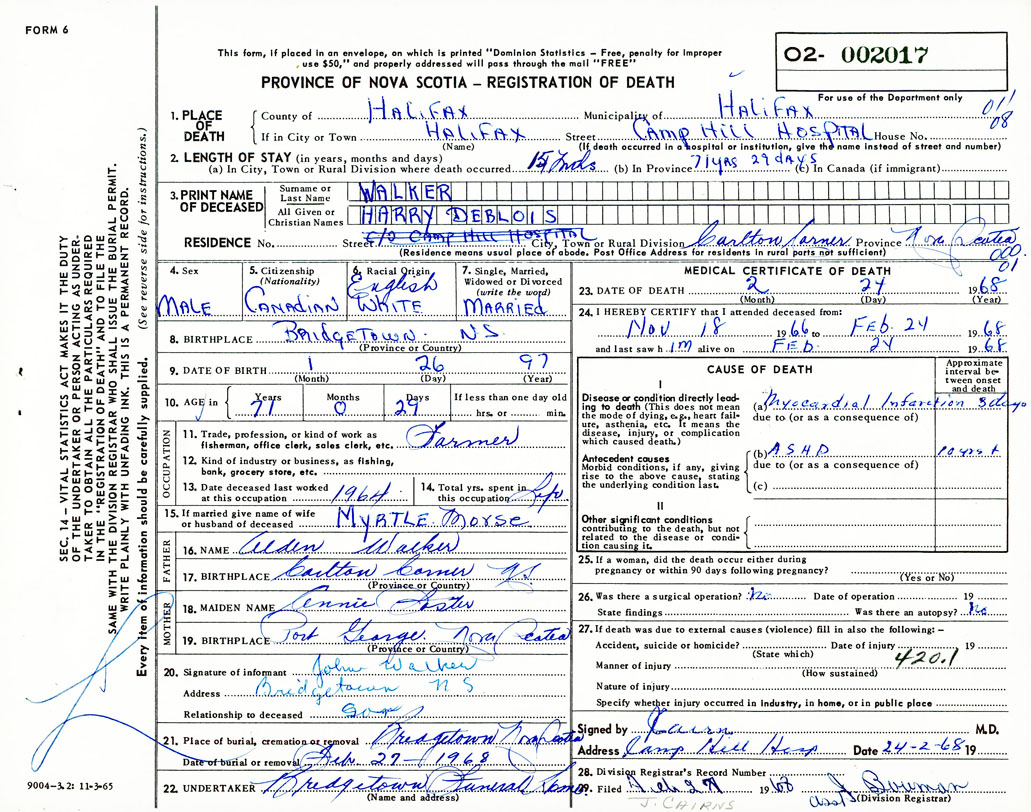 FORM 6
This form, if placed in an envelope, on which is printed "Dominion Statistics – Free, penalty for improper
use $50," and properly addressed will pass through the mail "FREE"
PROVINCE OF NOVA SCOTIA – REGISTRATION OF DEATH
02- 002017
For use of the Department only
011
08
1. PLACE OF DEATH
County of HALIFAX Municipality of HALIFAX
If in City or Town HALIFAX Street CAMP HILL HOSPITAL House No.
(Name) (If death occurred in a hospital or institution, give the name instead of street and number)
2. LENGTH OF STAY (in years, months and days)
(a) In City, Town or Rural Division where death occurred 15 mds (b) In Province 71 YRS 29 DAYS (c) In Canada (if immigrant)
3. PRINT NAME OF DECEASED
Surname or Last Name WALKER
All Given or Christian Names HARRY DEBLOIS
C/O CAMP HILL HOSPITAL
RESIDENCE No. Street City, Town or Rural Division Carlton Corner Province Nova Scotia
(Residence means usual place of abode. Post Office Address for residents in rural parts not sufficient)
000.
01
4. Sex MALE
5. Citizenship (Nationality) CANADIAN
6. Racial Origin English WHITE
7. Single, Married, Widowed or Divorced (write the word) MARRIED
8. BIRTHPLACE BRIDGETOWN. NS
(Province or Country)
9. DATE OF BIRTH 1 26 97
(Month) (Day) (Year)
10. AGE in Years 71 Months 0 Days 29 If less than one day old hrs. or min.
OCCUPATION
11. Trade, profession, or kind of work as fisherman, office clerk, sales clerk, etc. Farmer
12. Kind of industry or business, as fishing, bank, grocery store, etc.
13. Date deceased last worked at this occupation 1964
14. Total yrs. spent in this occupation Life
15. If married give name of wife or husband of deceased MYRTLE MORSE
FATHER
16. NAME Alden Walker
17. BIRTHPLACE Carlton Corner N.S.
(Province or Country)
MOTHER
18. MAIDEN NAME Annie Foster
19. BIRTHPLACE Port George Nova Scotia
(Province or Country)
20. Signature of informant John Walker
Address Bridgetown N S
Relationship to deceased Son
21. Place of burial, cremation or removal Bridgetown Nova Scotia
Date of burial or removal Feb. 27 - 1968
22. UNDERTAKER Bridgetown Funeral Home
(Name and address)
MEDICAL CERTIFICATE OF DEATH
23. DATE OF DEATH 2 24 1968
(Month) (Day) (Year)
24. I HEREBY CERTIFY that I attended deceased from:
NOV 18 1966 to FEB. 24 1968
and last saw him alive on FEB. 24 1968
CAUSE OF DEATH
Approximate interval between onset and death
I
Disease or condition directly leading to death (This does not mean the mode of dying, e.g., heart failure, asthenia, etc. It means the disease, injury, or complication which caused death.)
(a) Myocardial Infarction 3 days
due to (or as a consequence of)
Antecedent causes
Morbid conditions, if any, giving rise to the above cause, stating the underlying condition last.
(b) ASHD 10 yrs +
due to (or as a consequence of)
(c)
II
Other significant conditions
contributing to the death, but not related to the disease or condition causing it.
25. If a woman, did the death occur either during
pregnancy or within 90 days following pregnancy?
(Yes or No)
26. Was there a surgical operation? No Date of operation 19
State findings Was there an autopsy? No
27. If death was due to external causes (violence) fill in also the following: –
Accident, suicide or homicide? Date of injury 19
(State which)
Manner of injury 420.1
(How sustained)
Nature of injury
Specify whether injury occurred in Industry, in home, or in public place
Signed by Cairn M.D.
Address Camp Hill Hosp Date 24-2-68 19
28. Division Registrar's Record Number
29. Filed Feb 27 1968 J. Bowman
J. CAIRNS asst (Division Registrar)
SEC. 14 – VITAL STATISTICS ACT MAKES IT THE DUTY
OF THE UNDERTAKER OR PERSON ACTING AS UNDERTAKER
TO OBTAIN ALL THE PARTICULARS REQUIRED
IN THE "REGISTRATION OF DEATH" AND TO FILE THE
SAME WITH THE DIVISION REGISTRAR WHO SHALL ISSUE THE BURIAL PERMIT.
WRITE PLAINLY WITH UNFADING INK. THIS IS A PERMANENT RECORD.
Every item of information should be carefully supplied. (See reverse side for instructions.)
9004-3.2: 11-3-65